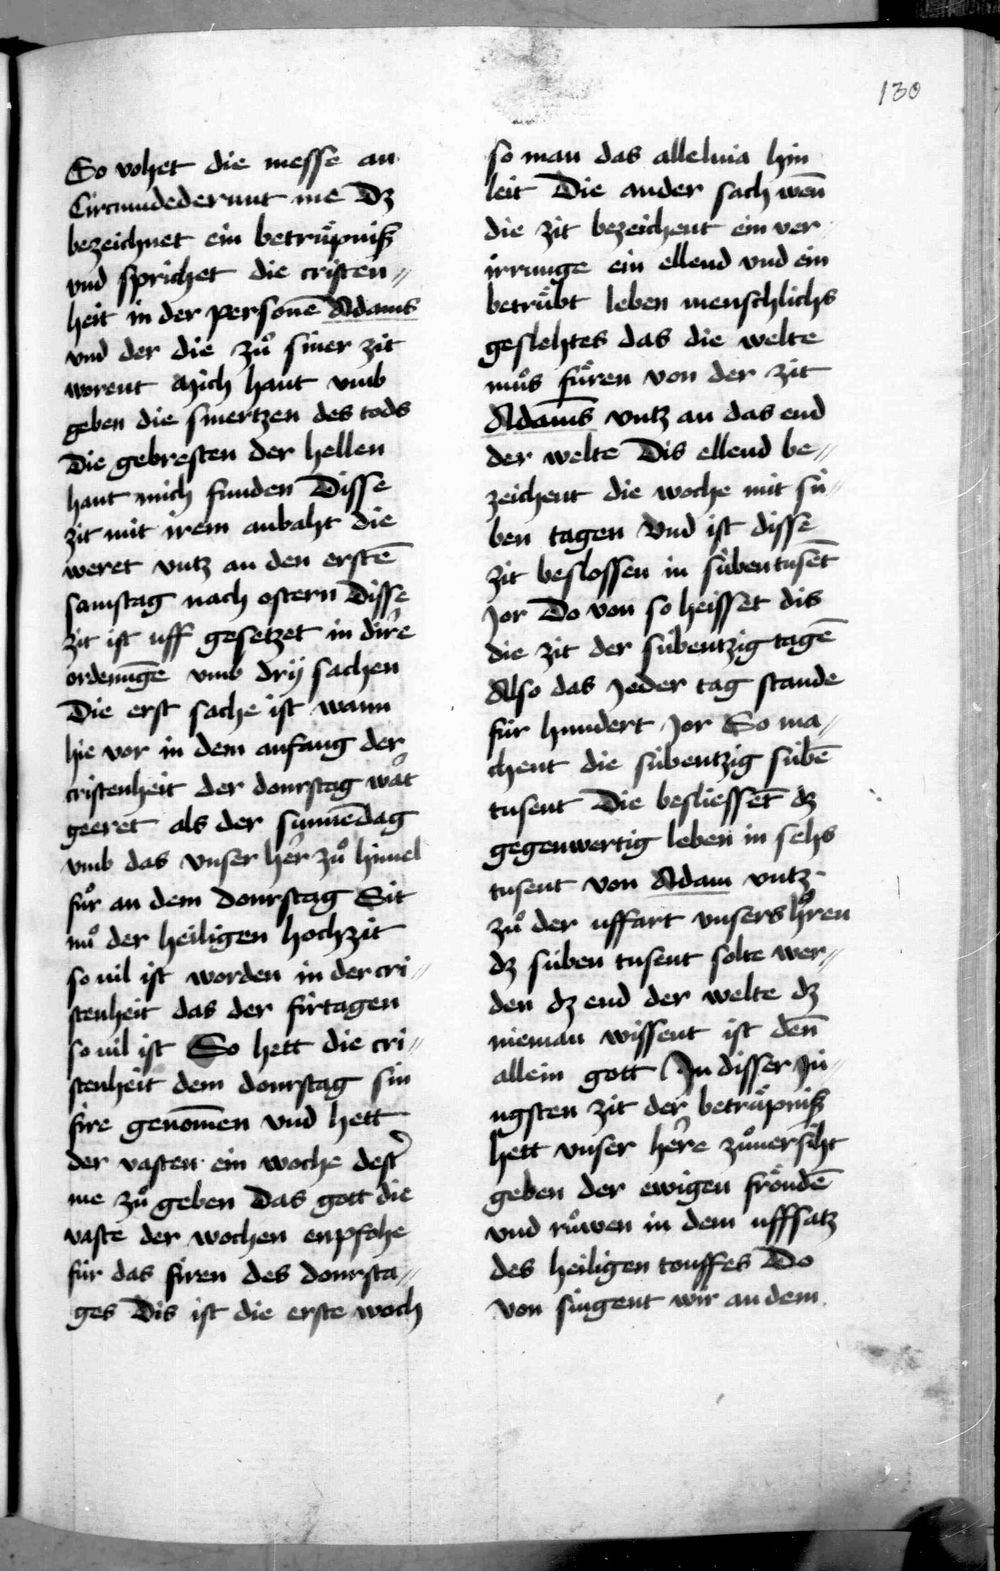 130
So vohet die messe an
Circumdederunt me Dz
bezeichnet ein betruͤpniß
vnd sprichet die cristen//
heit in der personē Adams
vnd der die zuͦ siner zit
worent Mich hant vmb
geben die smertzen des tods
Die gebresten der hellen
hant mich funden Disse
zit mit irem anbaht die
weret vntz an den erstē
samstag nach ostern Disse
zit ist uff gesetzet in dire
ordenūge vmb drÿ sachen
Die erst sache ist wann
hie vor in dem anfang der
cristenheit der donrstag wat
geeret als der sunnēdag
vmb das vnser her zuͦ himel
fuͦr an dem Donrstag Sit
nuͦ der heiligen hochzit
so uil ist worden in der cri//
stenheit das der firtagen
so uil ist So hett die cri//
stenheit dem donrstag sin
fire genom̄en vnd hett
der vasten ein woche dest
me zuͦ geben Das gott die
vaste der wochen enpfohe
fúr das firen des donrsta//
ges Dis ist die erste woch
so man das alleluia hin
leit Die ander sach wen̄
die zit bezeichent ein ver
irrunge ein ellend vnd ein
betruͤbt leben menschlichs
geslehtes das die welte
muͦs fuͤren von der zit
Adams vntz an das end
der welte Dis ellend be//
zeichent die woche mit sú//
ben tagen Vnd ist disse
zit beslossen in súbentusēt
Jor Do von so heisset dis
die zit der súbentzig tagē
Also das Jeder tag stande
fúr hundert Jor So ma//
chent die súbentzig súbē
tusent Die besliessēt dz
gegenwertig leben in sehs
tusent von Adam vntz
zuͦ der uffart vnsers hͦren
dz súben tusent solte wer//
den dz end der welte dz
nieman wissent ist den̄
allein gott In disser Ju//
ngsten zit der betruͤpniß
hett vnser here zuͦuersiht
geben der ewigen froͤudē
vnd ruͦwen in dem ufffsatz
des heiligen touffes Do
von singent wir an dem